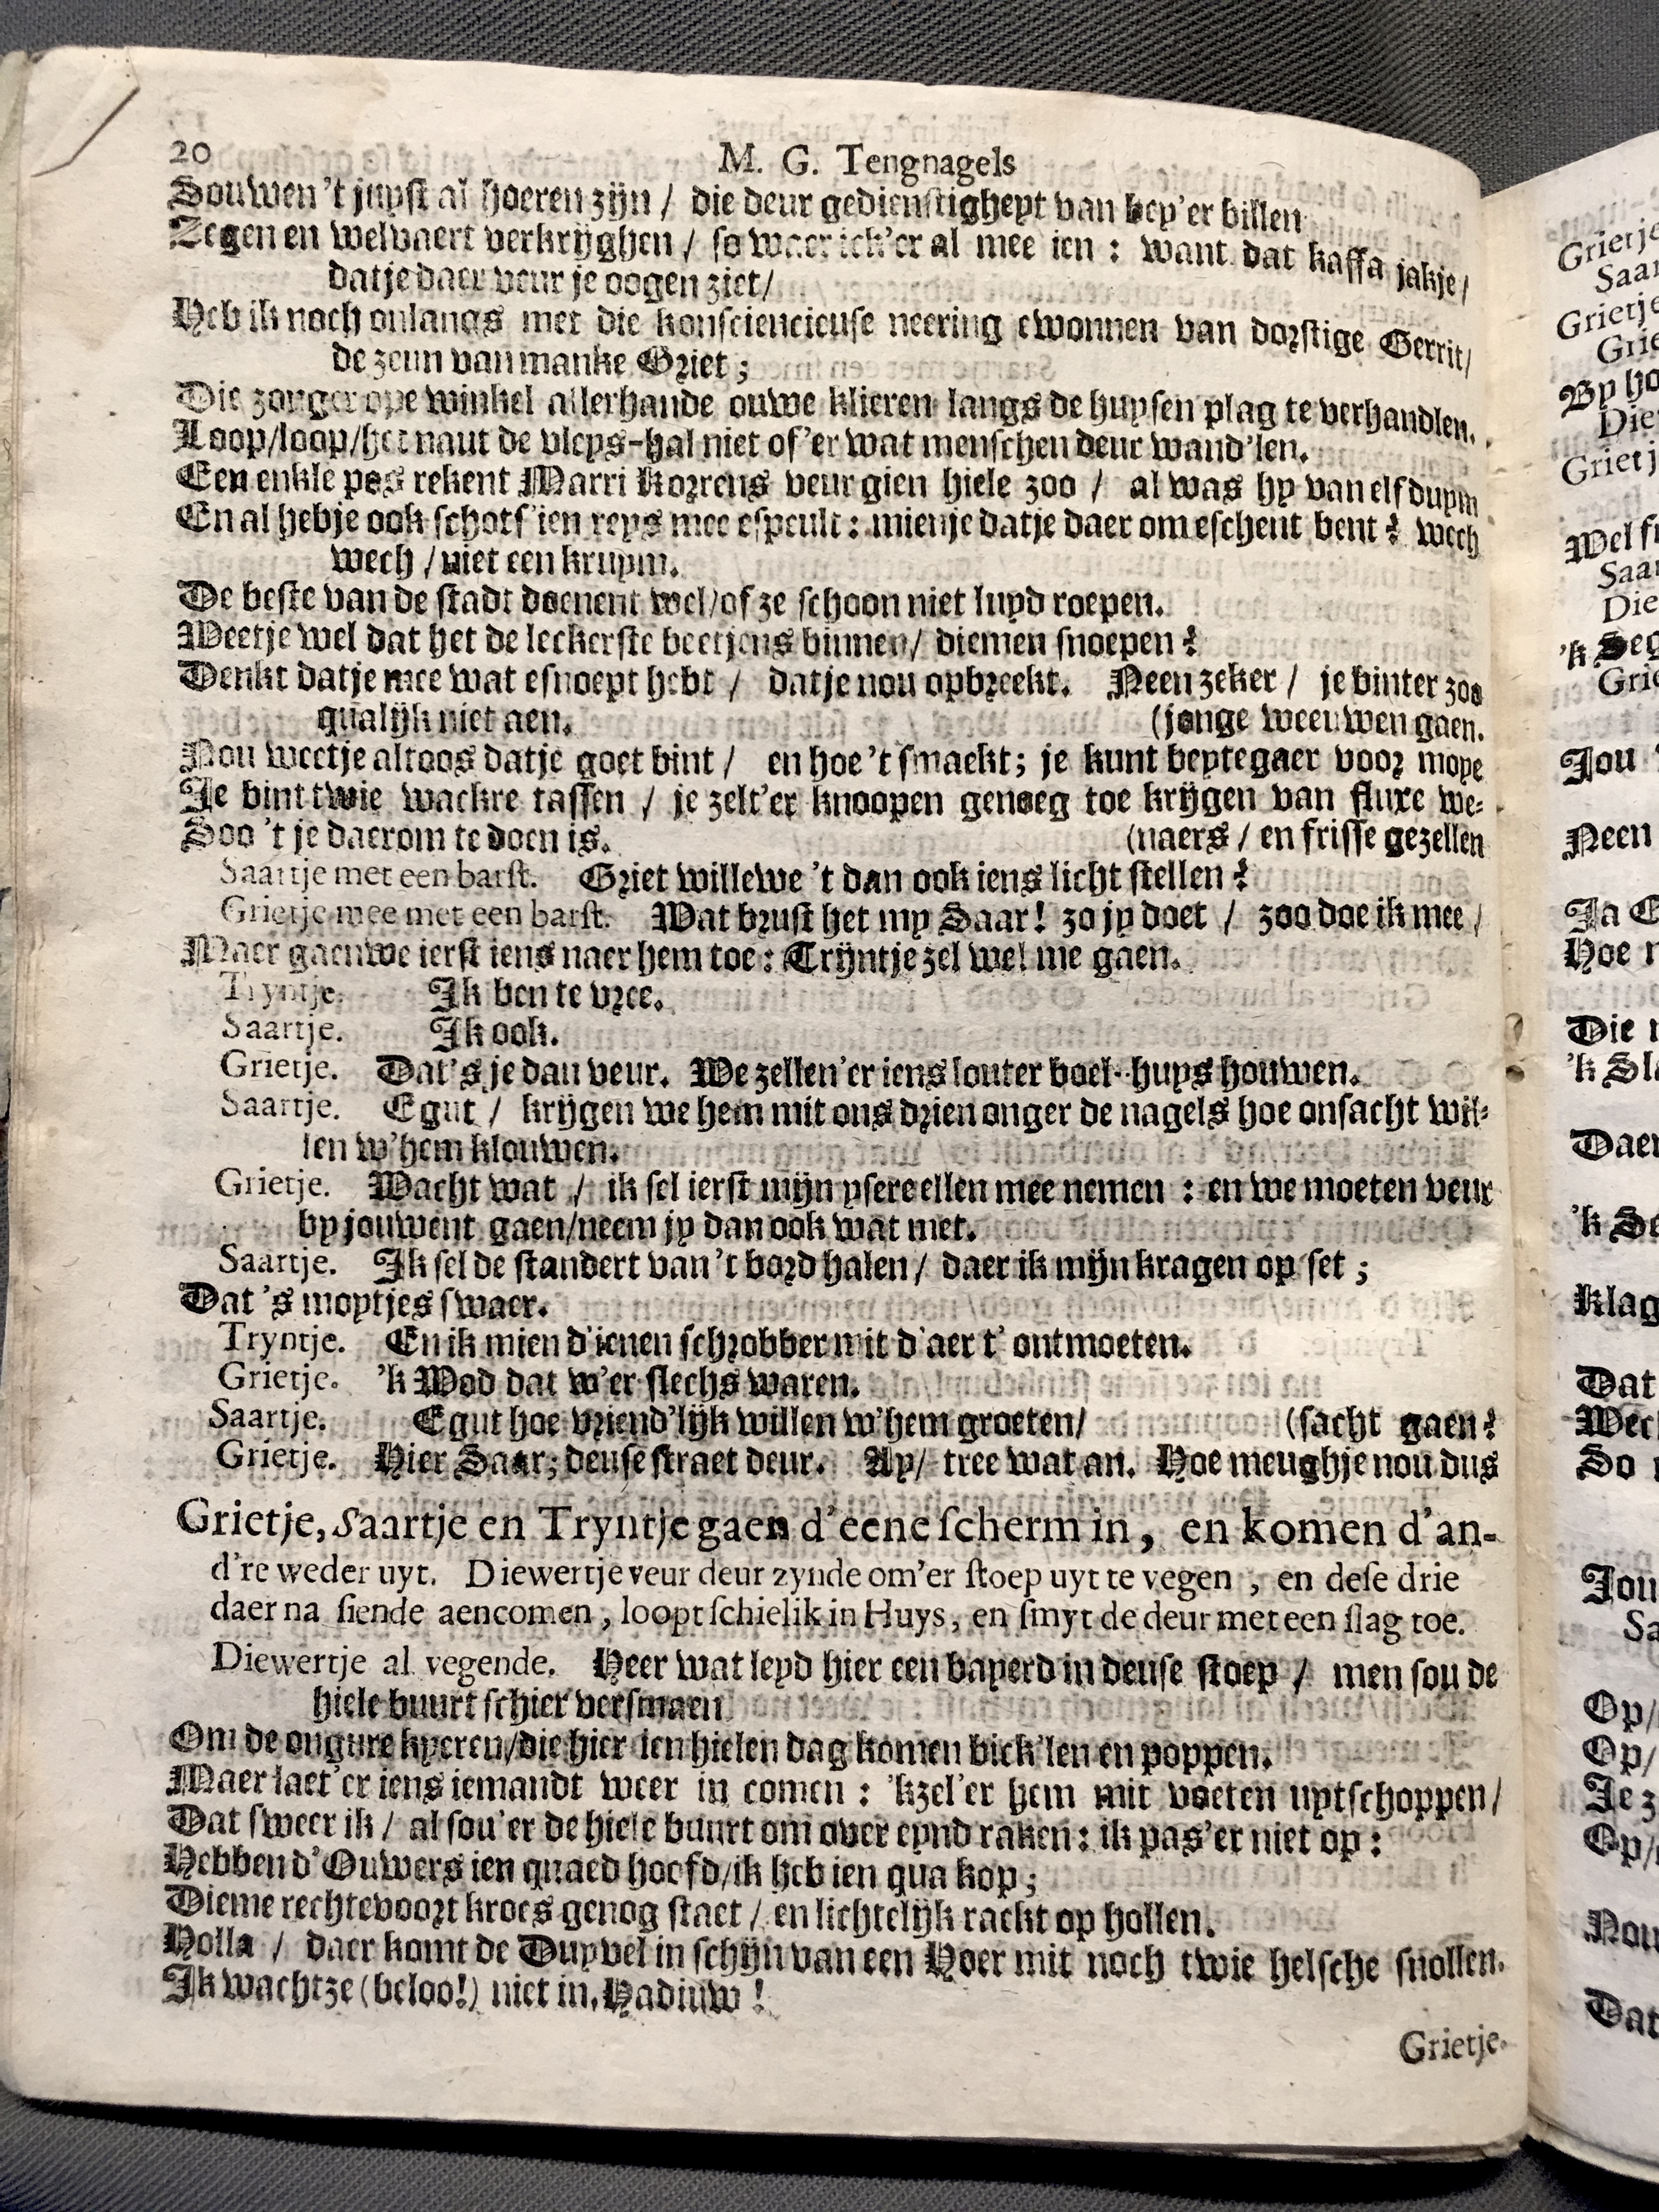 20 M. G. Tengnagels
Souwen 't juyst al hoeren zijn / die deur gedienstigheyt van bey'er billen
Zegen en welvaert verkrijghen / so waer ick'er al mee ien : want dat kaffa jakje /
datje daer veur je oogen ziet /
Heb ik noch onlangs met die konsciencieuse neering ewonnen van dorstige Gerrit /
de zeun van manke Griet ;
Die zorger ope winkel allerhande ouwe klieren langs de huysen plag te verhandlen.
Loop / loop / het naut de vleys-hal niet of'er wat menschen deur wand'len.
Een enkle pos rekent Marri Korrens veur gien hiele zoo / al was hy van elf duym
En al hebje ook schots ien reys mee espeult : mienje datje daer om eschent bent ? wech
wech / niet een kruym.
De beste van de stadt doenent wel / of ze schoon niet luyd roepen.
Weetje wel dat het de leckerste beetjens binnen / diemen snoepen ?
Denkt datje mee wat esnoept hebt / datje nou opbreekt. Neen zeker / je binter zoo
qualijk niet aen. (jonge weeuwen gaen.
Nou weetje altoos datje goet bint / en hoe 't smaekt; je kunt beytegaer voor moye
Je bint twie wackre tassen / je zelt'er knoopen genoeg toe krijgen van fluxe we-
Soo 't je daerom te doen is. (naers / en frisse gezellen
Saartje met een barst. Griet willewe 't dan ook iens licht stellen ?
Grietje mee met een barst. Wat brust het my Saar ! zo jy doet / zoo doe ik mee /
Maer gaenwe ierst iens naer hem toe : Trijntje zel wel me gaen.
Tryntje. Ik ben te vree.
Saartje. Ik ook.
Grietje. Dat's je dan veur. We zellen'er iens louter boel-huys houwen.
Saartje. E gut / krijgen we hem mit ons drien onger de nagels hoe onsacht wil-
len w'hem klouwen.
Grietje. Wacht wat / ik sel ierst mijn ysere ellen mee nemen : en we moeten veur
by jouwent gaen / neem jy dan ook wat met.
Saartje. Ik sel de standert van 't bord halen / daer ik mijn kragen op set ;
Dat 's moytjes swaer.
Tryntje. En ik mien d'ienen schrobber mit d'aer t' ontmoeten.
Grietje. 'k Wod dat w'er slechs waren.
Saartje. E gut hoe vriend'lijk willen w'hem groeten / (sacht gaen ?
Grietje. Hier Saar; deuse straet deur. Ay / tree wat an. Hoe meughje nou dus
Grietje, Saartje en Tryntje gaen d'eene scherm in, en komen d'an-
d're weder uyt. Diewertje veur deur zynde om'er stoep uyt te vegen, en dese drie
daer na siende aencomen, loopt schielik in Huys, en smyt de deur met een slag toe.
Diewertje al vegende. Heer wat leyd hier een bayerd in deuse stoep / men sou de
hiele buurt schier versmaen
Om de ongure kyeren / die hier ien hielen dag komen bick'len en poppen.
Maer laet'er iens iemandt weer in comen : 'kzel'er hem mit voeten uytschoppen /
Dat sweer ik / al sou'er de hiele buurt om over eynd raken : ik pas'er niet op :
Hebben d'Ouwers ien quaed hoofd / ik heb ien qua kop ;
Dieme rechtevoort kroes genog staet / en lichtelijk raekt op hollen.
Holla / daer komt de Duyvel in schijn van een Hoer mit noch twie helsche snollen.
Ik wachtze (beloo!) niet in. Hadiuw !
Grietje.